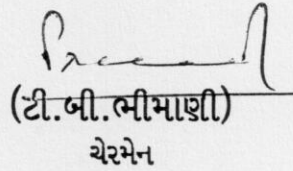 (ટી.બી.ભીમાણી)
ચેરમેન